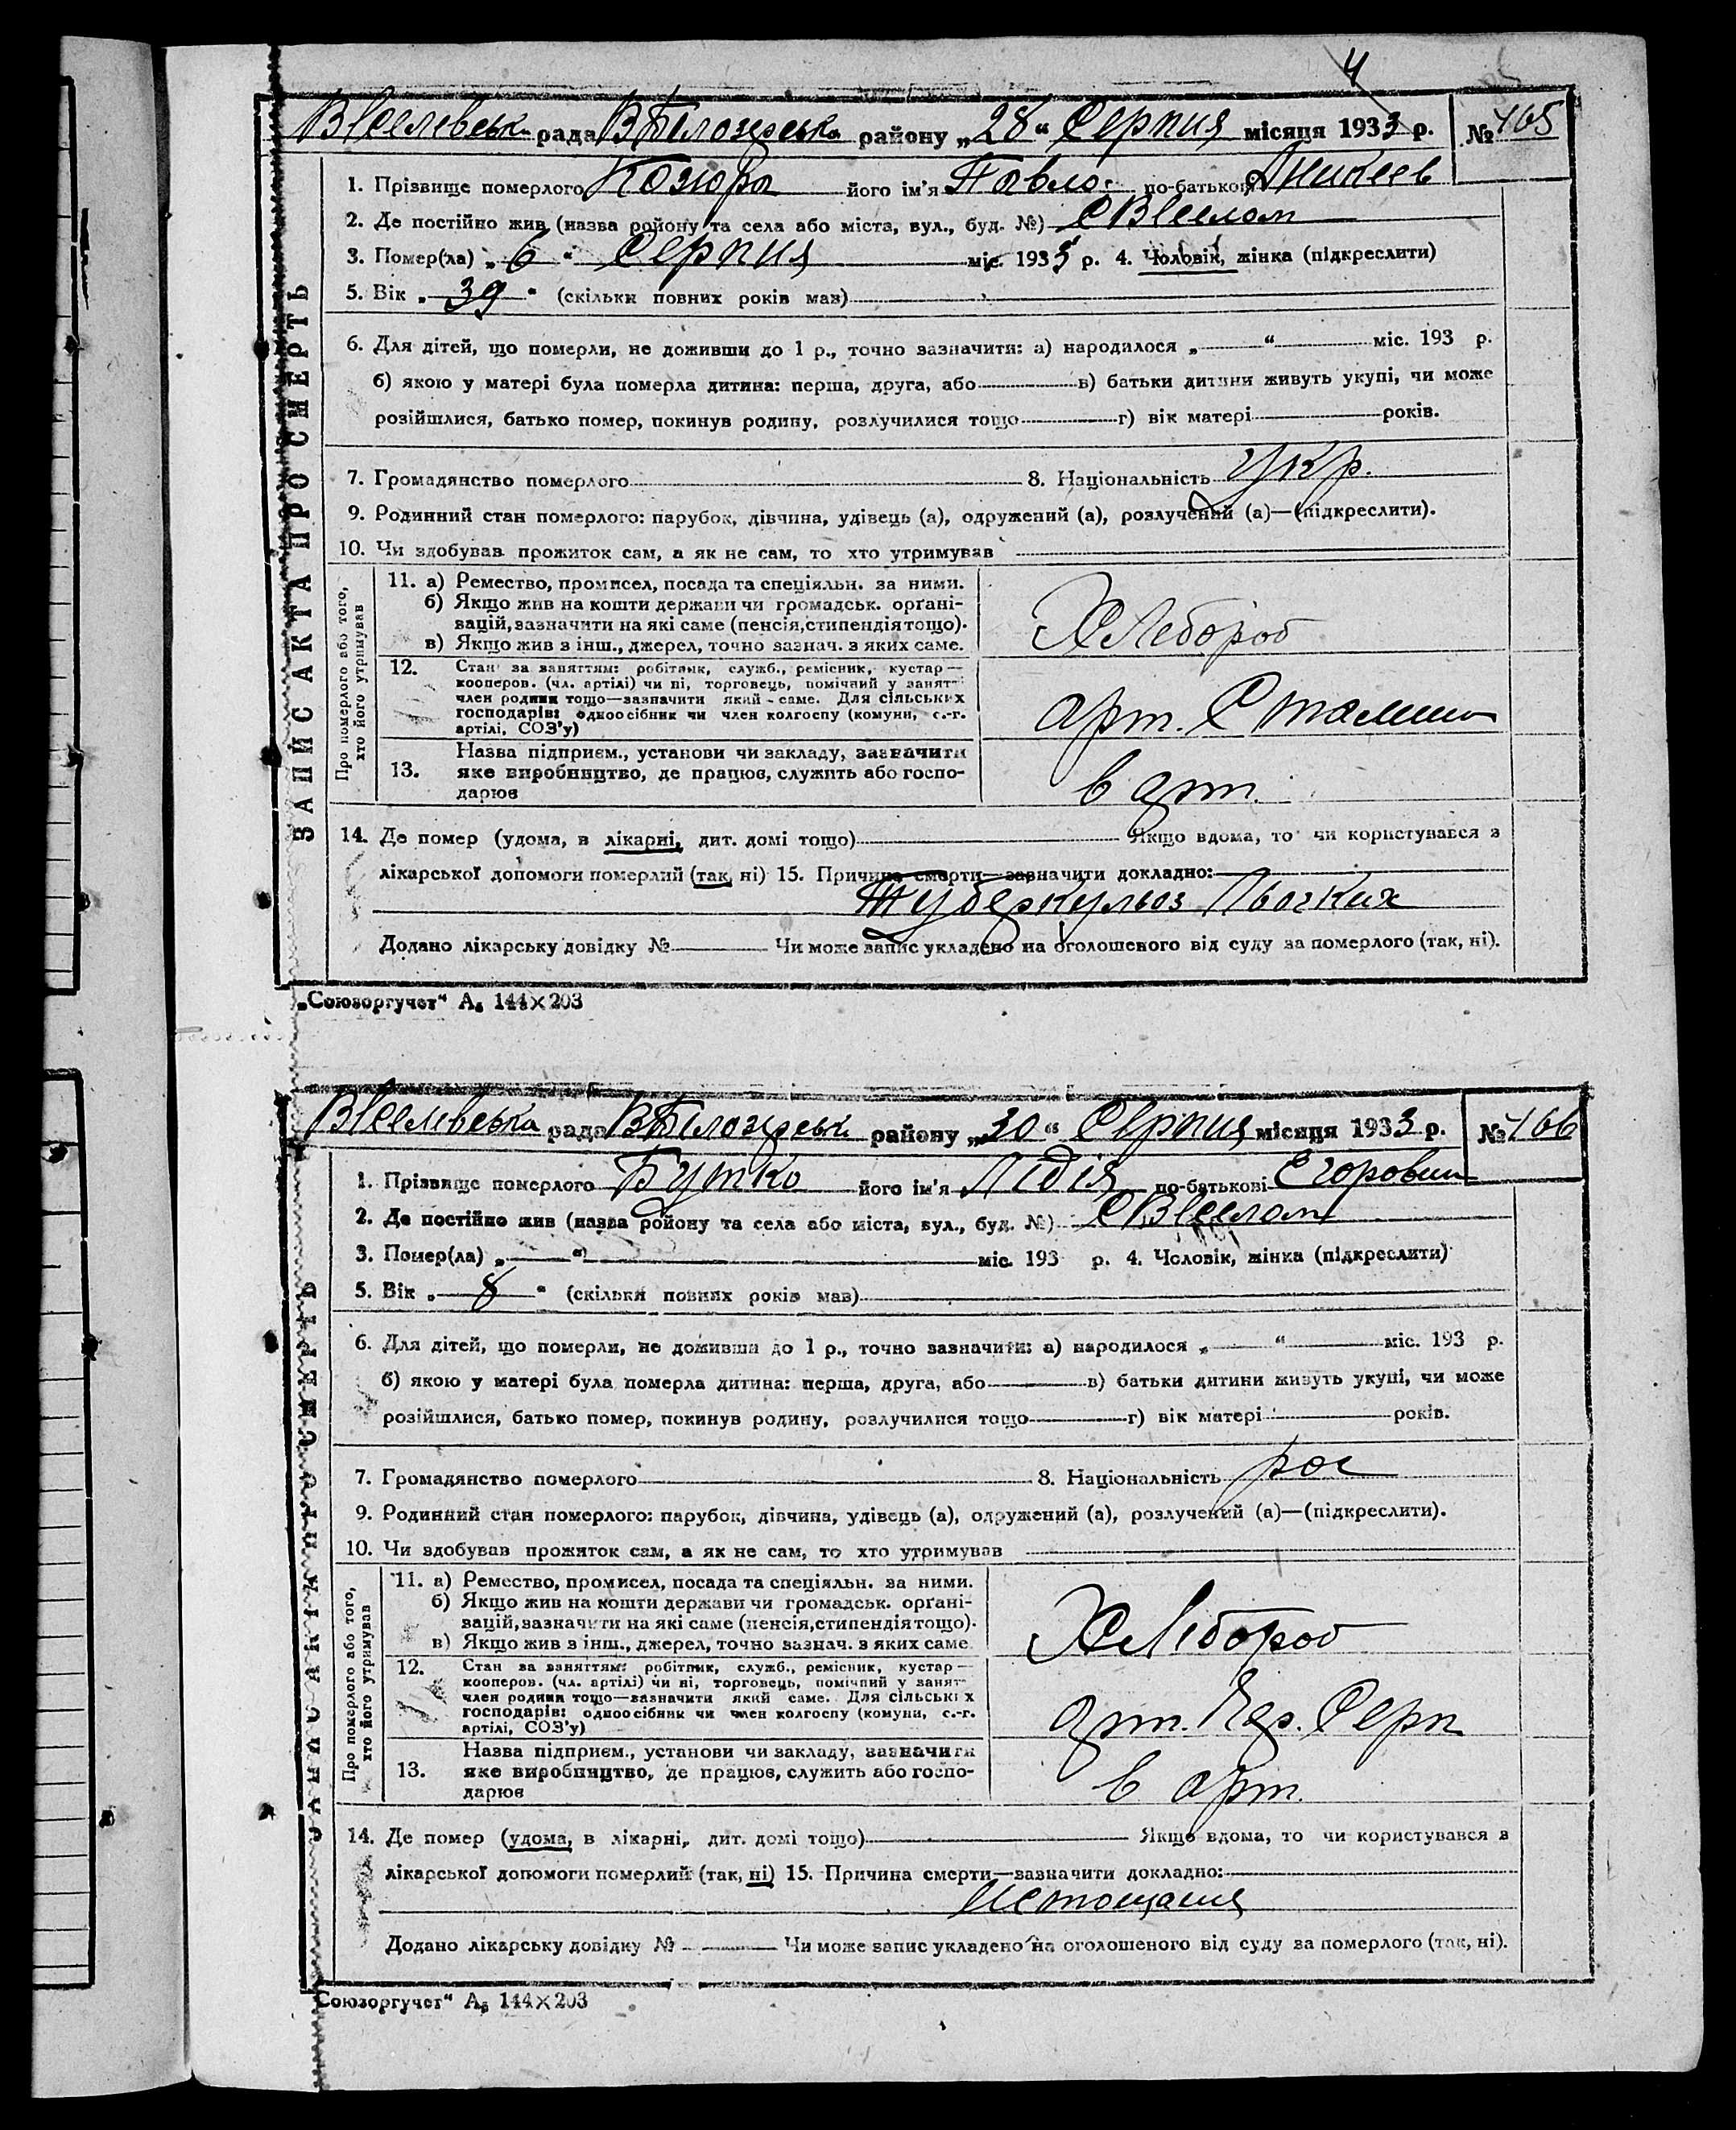 4
Веселевська рада ВБілозерська району „28“ Серпня місяця 1933 р. № 165
1. Прізвище померлого Козюра його ім'я Павло по-батькові Аникеев
2. Де постійно жив (назва ройону та села або міста, вул., буд. №) С Веселом
3. Помер(ла) „6“ Серпня міс. 1933 р. 4. Чоловік, жінка (підкреслити)
5. Вік „39“ (скільки повних років мав)
6. Для дітей, що померли, не доживши до 1 р., точно зазначити: а) народилося „ “ міс. 193 р.
б) якою у матері була померла дитина: перша, друга, або в) батьки дитини живуть укупі, чи може
розійшлися, батько помер, покинув родину, розлучилися тощо г) вік матері років.
7. Громадянство померлого 8. Національність Укр.
9. Родинний стан померлого: парубок, дівчина, удівець (а), одружений (а), розлучений (а)—(підкреслити).
10. Чи здобував прожиток сам, а як не сам, то хто утримував
ЗАПИС АКТА ПРО СМЕРТЬ
Про померлого або того, хто його утримував
11. а) Ремество, промисел, посада та спеціяльн. за ними.
б) Якщо жив на кошти держави чи громадськ. орґані-
зацій, зазначити на які саме (пенсія, стипендія тощо).
в) Якщо жив з інш., джерел, точно зазнач. з яких саме.
Хлебороб
12. Стан за заняттям: робітник, служб., ремісник, кустар—
кооперов. (чл. артілі) чи ні, торговець, помічний у занят-
член родини тощо—зазначити який-саме. Для сільських
господарів: одноосібник чи член колгоспу (комуни, с.-г.
артілі, СОЗ'у)
арт. Сталина
13. Назва підприєм., установи чи закладу, зазначити
яке виробництво, де працює, служить або госпо-
дарює
в арт.
14. Де помер (удома, в лікарні, дит. домі тощо) Якщо вдома, то чи користувався з
лікарської допомоги померлий (так, ні) 15. Причина смерти—зазначити докладно:
Туберкульоз Льогких
Додано лікарську довідку № Чи може запис укладено на оголошеного від суду за померлого (так, ні).
„Союзоргучет“ А₅ 144×203
Веселевська рада ВБілозерськ району „30“ Серпня місяця 1933 р. № 166
1. Прізвище померлого Бутко його ім'я Лідія по-батькові Егоровни
2. Де постійно жив (назва ройону та села або міста, вул., буд. №) С Веселом
3. Помер(ла) „ “ міс. 193 р. 4. Чоловік, жінка (підкреслити)
5. Вік „8“ (скільки повних років мав)
6. Для дітей, що померли, не доживши до 1 р., точно зазначити: а) народилося „ “ міс. 193 р.
б) якою у матері була померла дитина: перша, друга, або в) батьки дитини живуть укупі, чи може
розійшлися, батько помер, покинув родину, розлучилися тощо г) вік матері років.
7. Громадянство померлого 8. Національність рос
9. Родинний стан померлого: парубок, дівчина, удівець (а), одружений (а), розлучений (а)—(підкреслити).
10. Чи здобував прожиток сам, а як не сам, то хто утримував
ЗАПИС АКТА ПРО СМЕРТЬ
Про померлого або того, хто його утримував
11. а) Ремество, промисел, посада та спеціяльн. за ними.
б) Якщо жив на кошти держави чи громадськ. орґані-
зацій, зазначити на які саме (пенсія, стипендія тощо).
в) Якщо жив з інш., джерел, точно зазнач. з яких саме.
Хлебороб
12. Стан за заняттям: робітник, служб., ремісник, кустар—
кооперов. (чл. артілі) чи ні, торговець, помічний у занят-
член родини тощо—зазначити який саме. Для сільських
господарів: одноосібник чи член колгоспу (комуни, с.-г.
артілі, СОЗ'у)
арт. Серп
13. Назва підприєм., установи чи закладу, зазначити
яке виробництво, де працює, служить або госпо-
дарює
в арт.
14. Де помер (удома, в лікарні, дит. домі тощо) Якщо вдома, то чи користувався з
лікарської допомоги померлий (так, ні) 15. Причина смерти—зазначити докладно:
Истощания
Додано лікарську довідку № Чи може запис укладено на оголошеного від суду за померлого (так, ні).
Союзоргучет“ А₅ 144×203